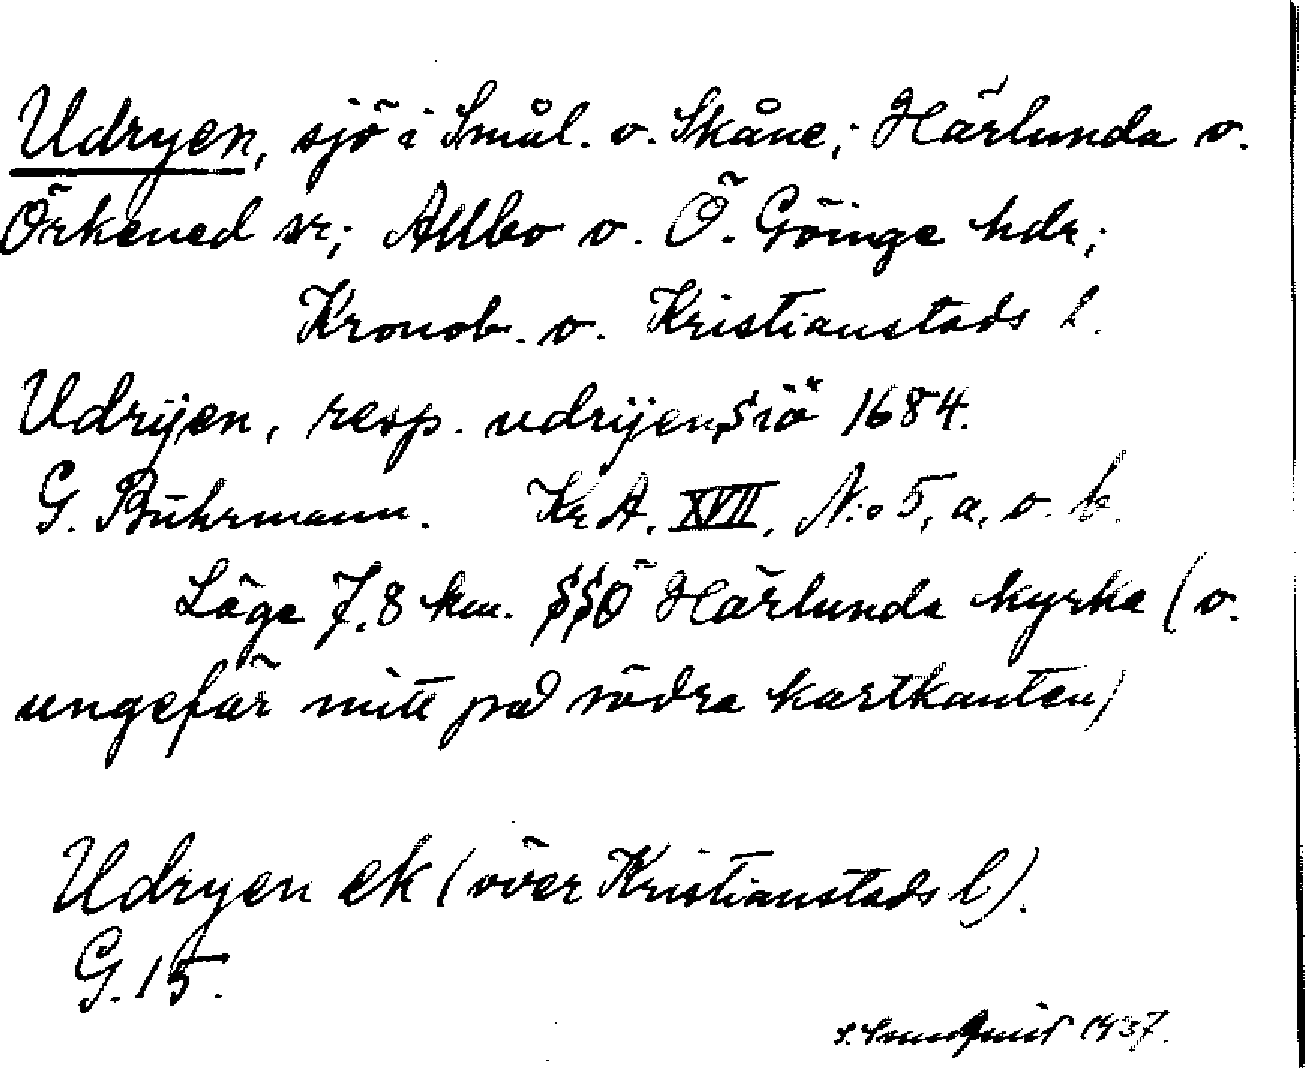 Udryen, sjö i Smål. o. Skåne; Härlunda o.
Örkened sr; Allbo o. Ö. Göinge hdr;
Kronob. o. Kristianstads l.
Udrijen, resp. udrijens siö 1684.
G. Buhrmann. KrA. XVII, N:o 5, a, o. b.
Läge 7.8 km. SSÖ Härlunda kyrka (o.
ungefär mitt på södra kartkanten)
Udryen ek (över Kristianstads l).
G. 15.
1937.